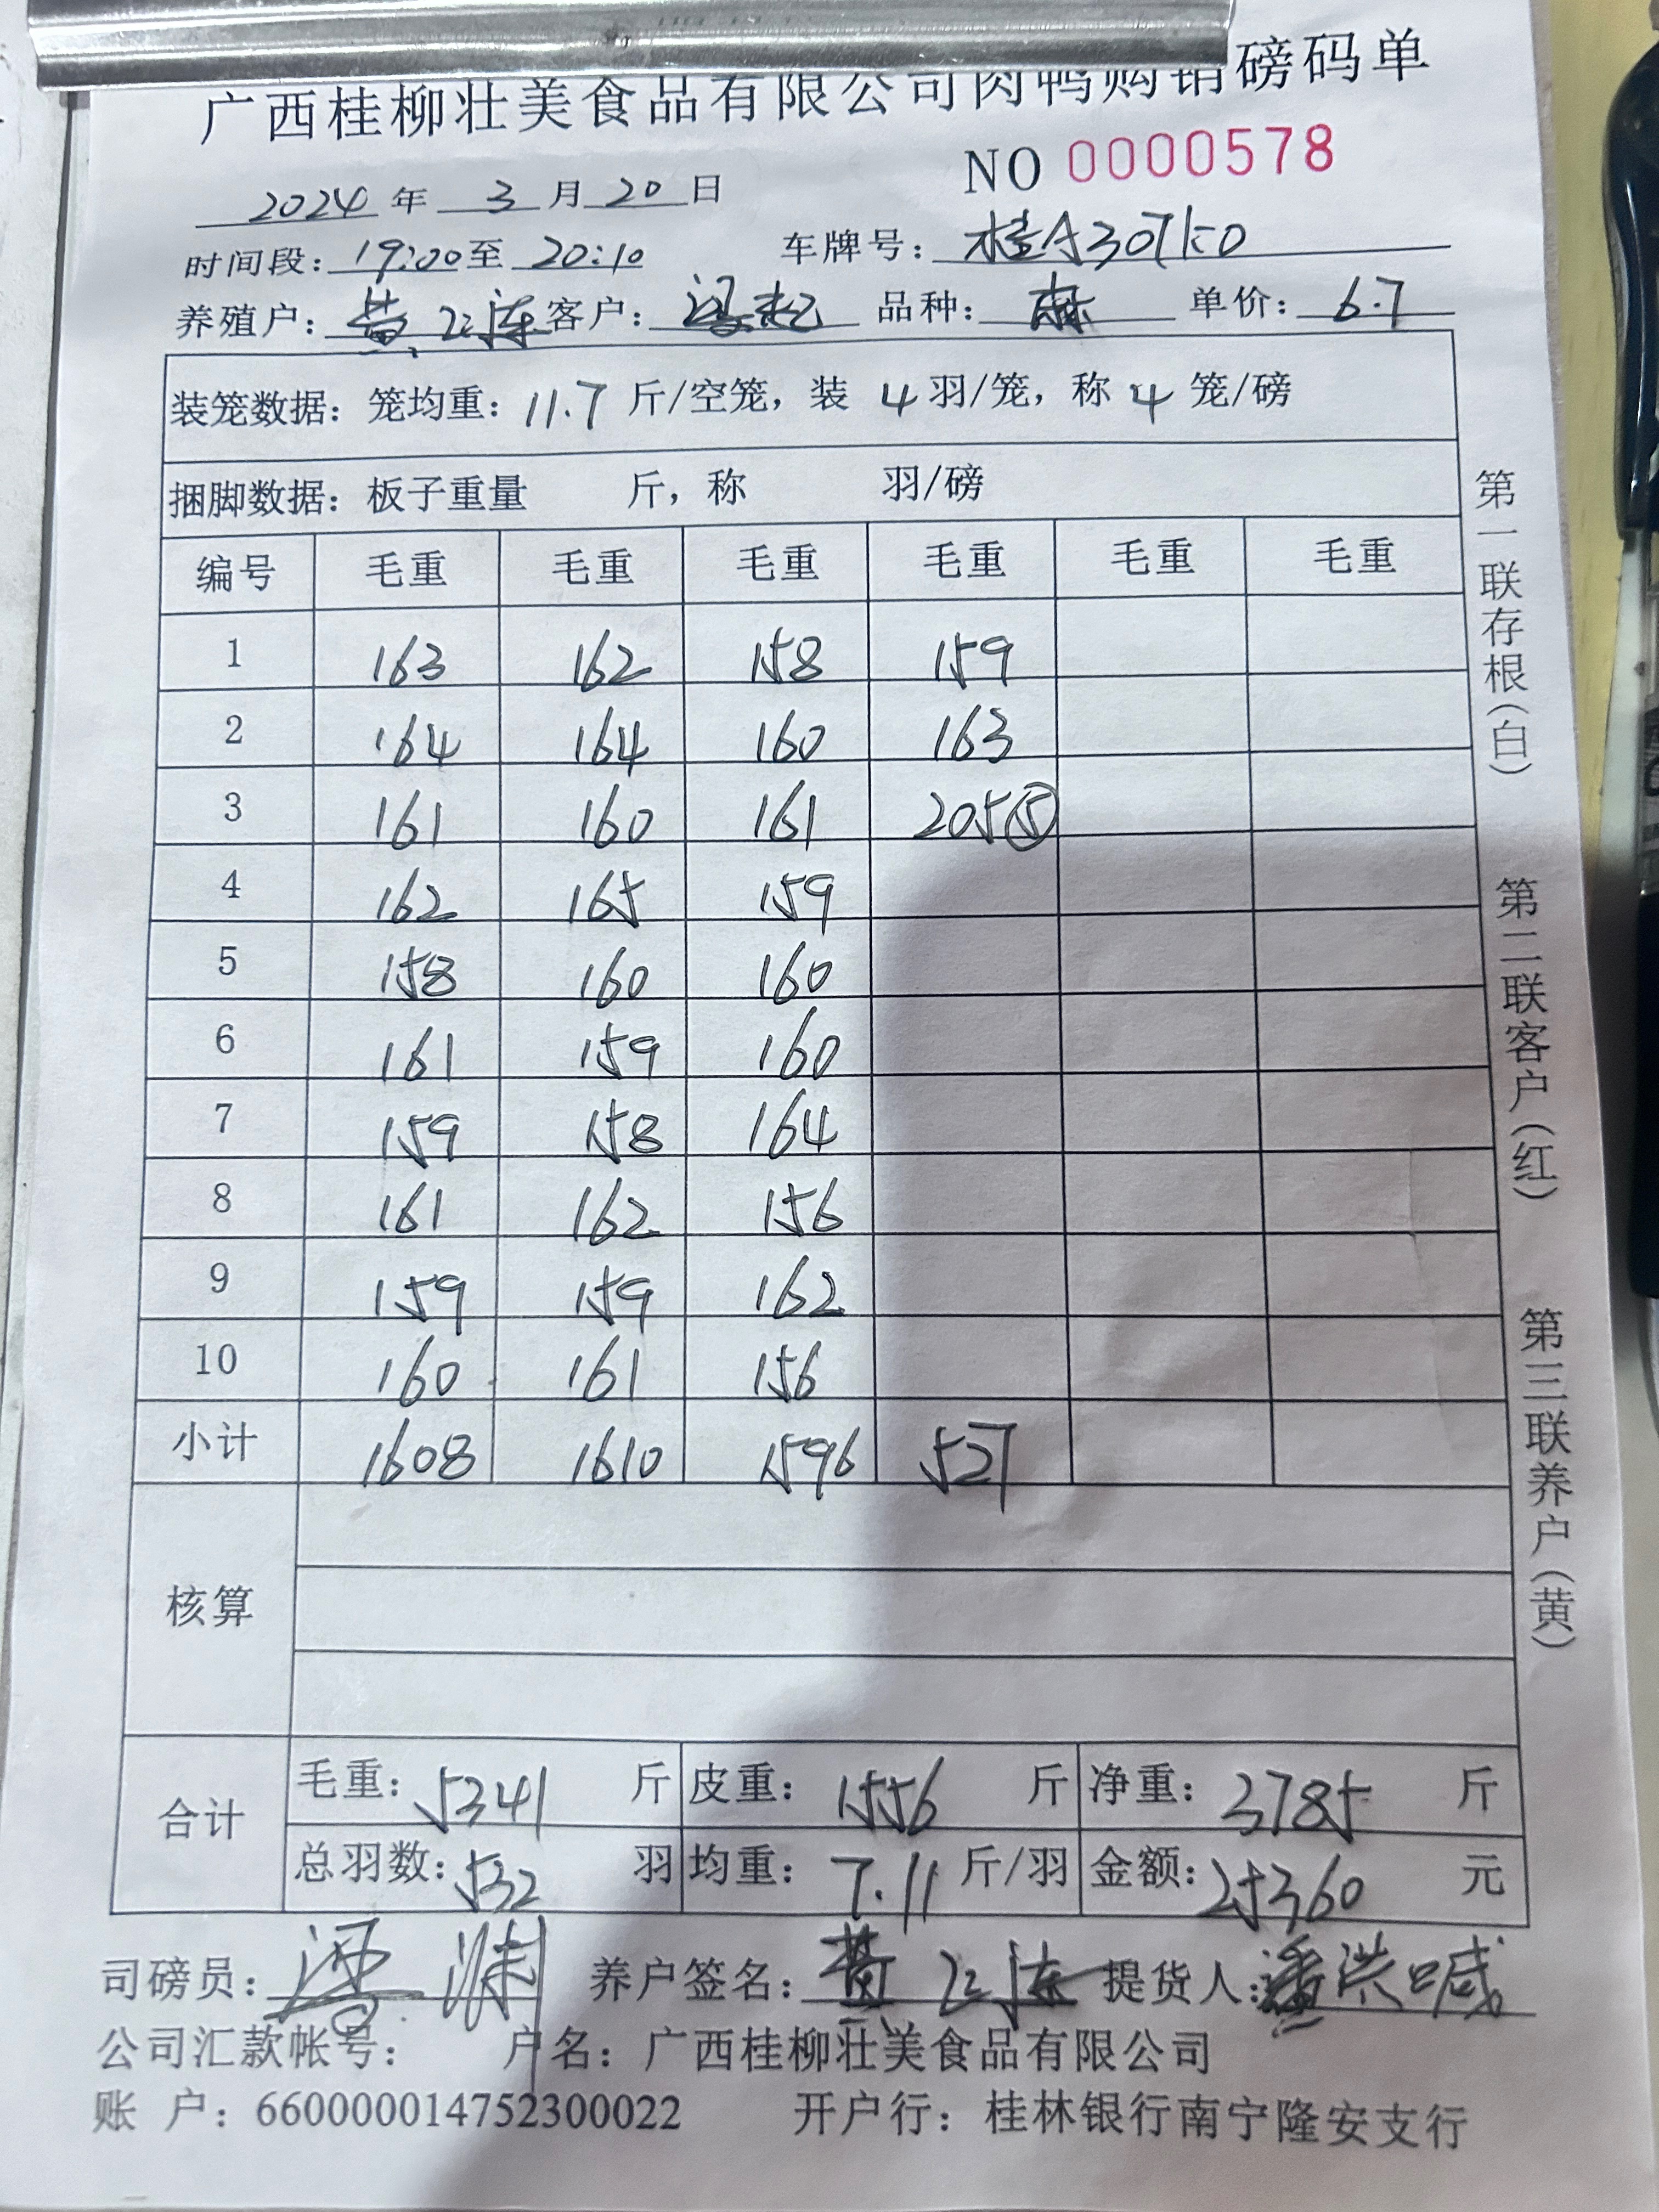 广西桂柳壮美食品有限公司肉鸭购销磅码单
NO 0000578
2024 年 3 月 20 日
时间段: 19:00 至 20:10 车牌号: 桂A307k0
养殖户: 黄 客户: 品种: 麻 单价: 6.7
装笼数据: 笼均重: 11.7 斤/空笼, 装 4 羽/笼, 称 4 笼/磅
捆脚数据: 板子重量 斤, 称 羽/磅
编号 毛重 毛重 毛重 毛重 毛重 毛重
1 163 162 158 159
2 164 164 160 163
3 161 160 161 205⑤
4 162 165 159
5 158 160 160
6 161 159 160
7 159 158 164
8 161 162 156
9 159 159 162
10 160 161 156
小计 1608 1610 1596 527
核算
合计 毛重: 5341 斤 皮重: 1556 斤 净重: 3785 斤
总羽数: 532 羽 均重: 7.11 斤/羽 金额: 25360 元
司磅员: 梁 养户签名: 黄 提货人: 潘洪喊
公司汇款帐号: 户名: 广西桂柳壮美食品有限公司
账 户: 660000014752300022 开户行: 桂林银行南宁隆安支行
第一联存根(白)
第二联客户(红)
第三联养户(黄)